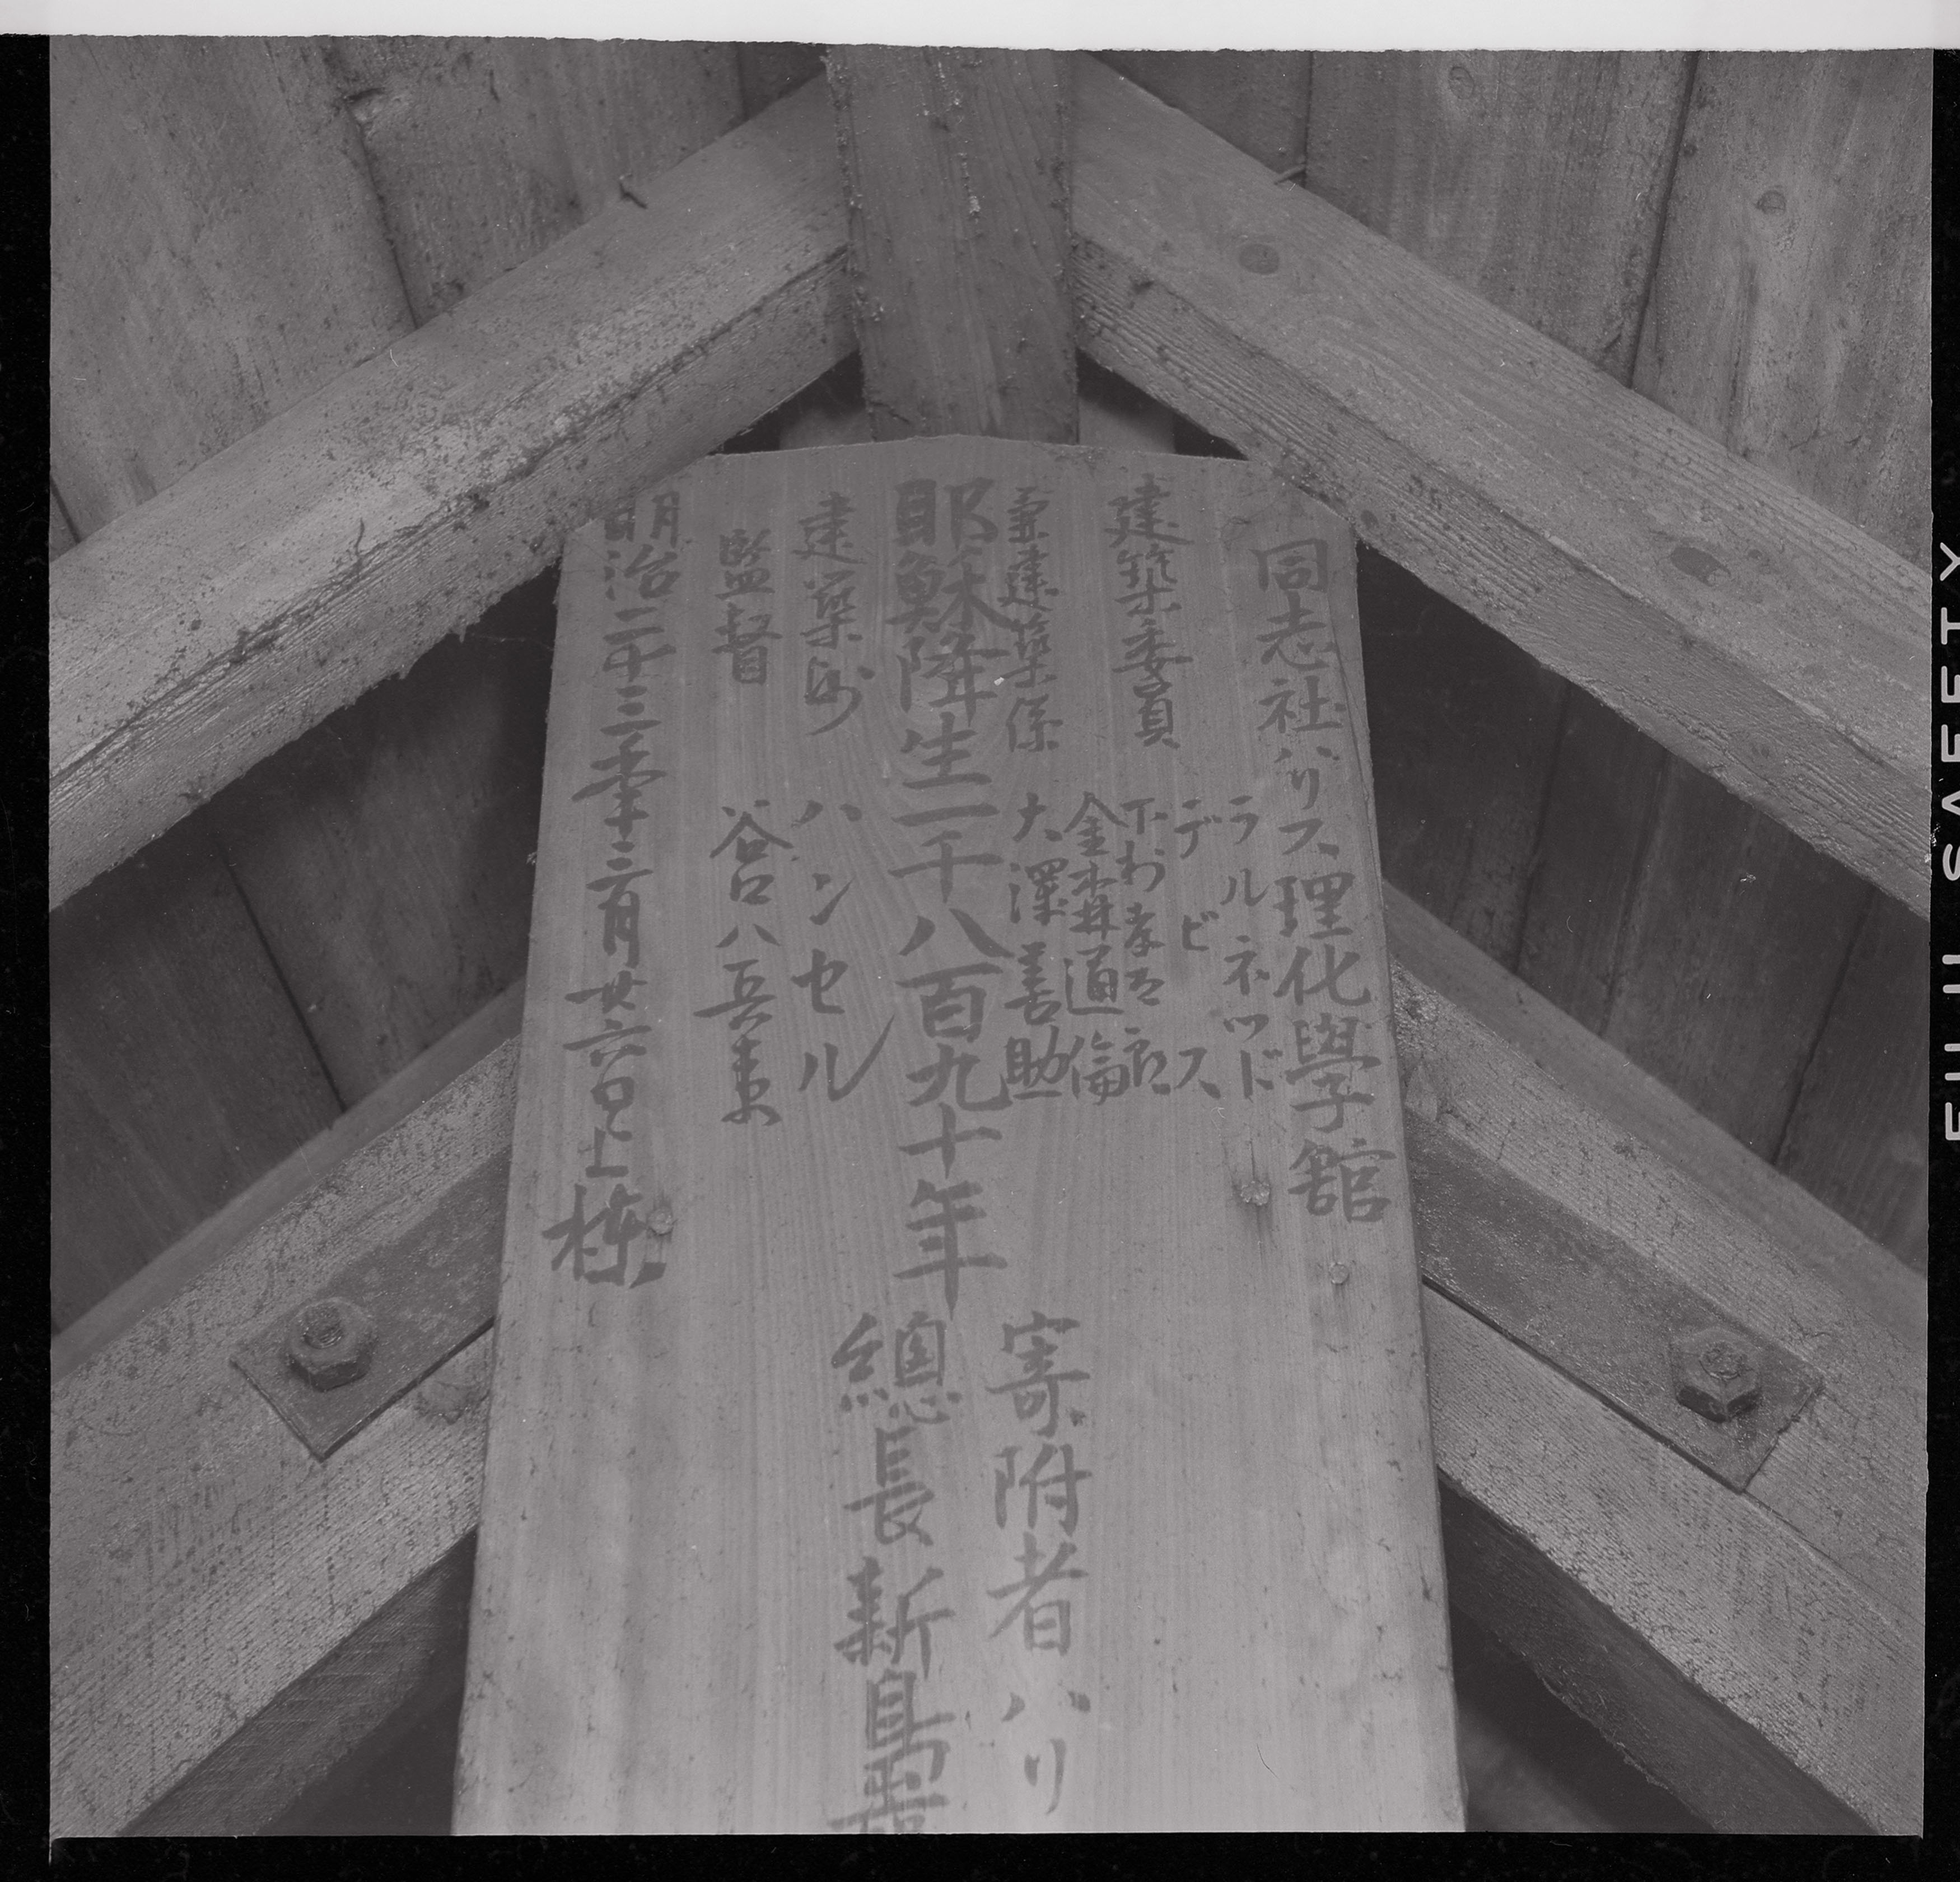 同志社ハリス理化學舘
建築委員
ラルネッド
デビス
下村孝太郎
金森通倫
兼建築係 大澤善助
耶穌降生一千八百九十年
寄附者ハリ
總長新島
建築師 ハンセル
監督 谷口八兵衛
明治二十三年十二月廿六日上棟
FUJI SAFETY